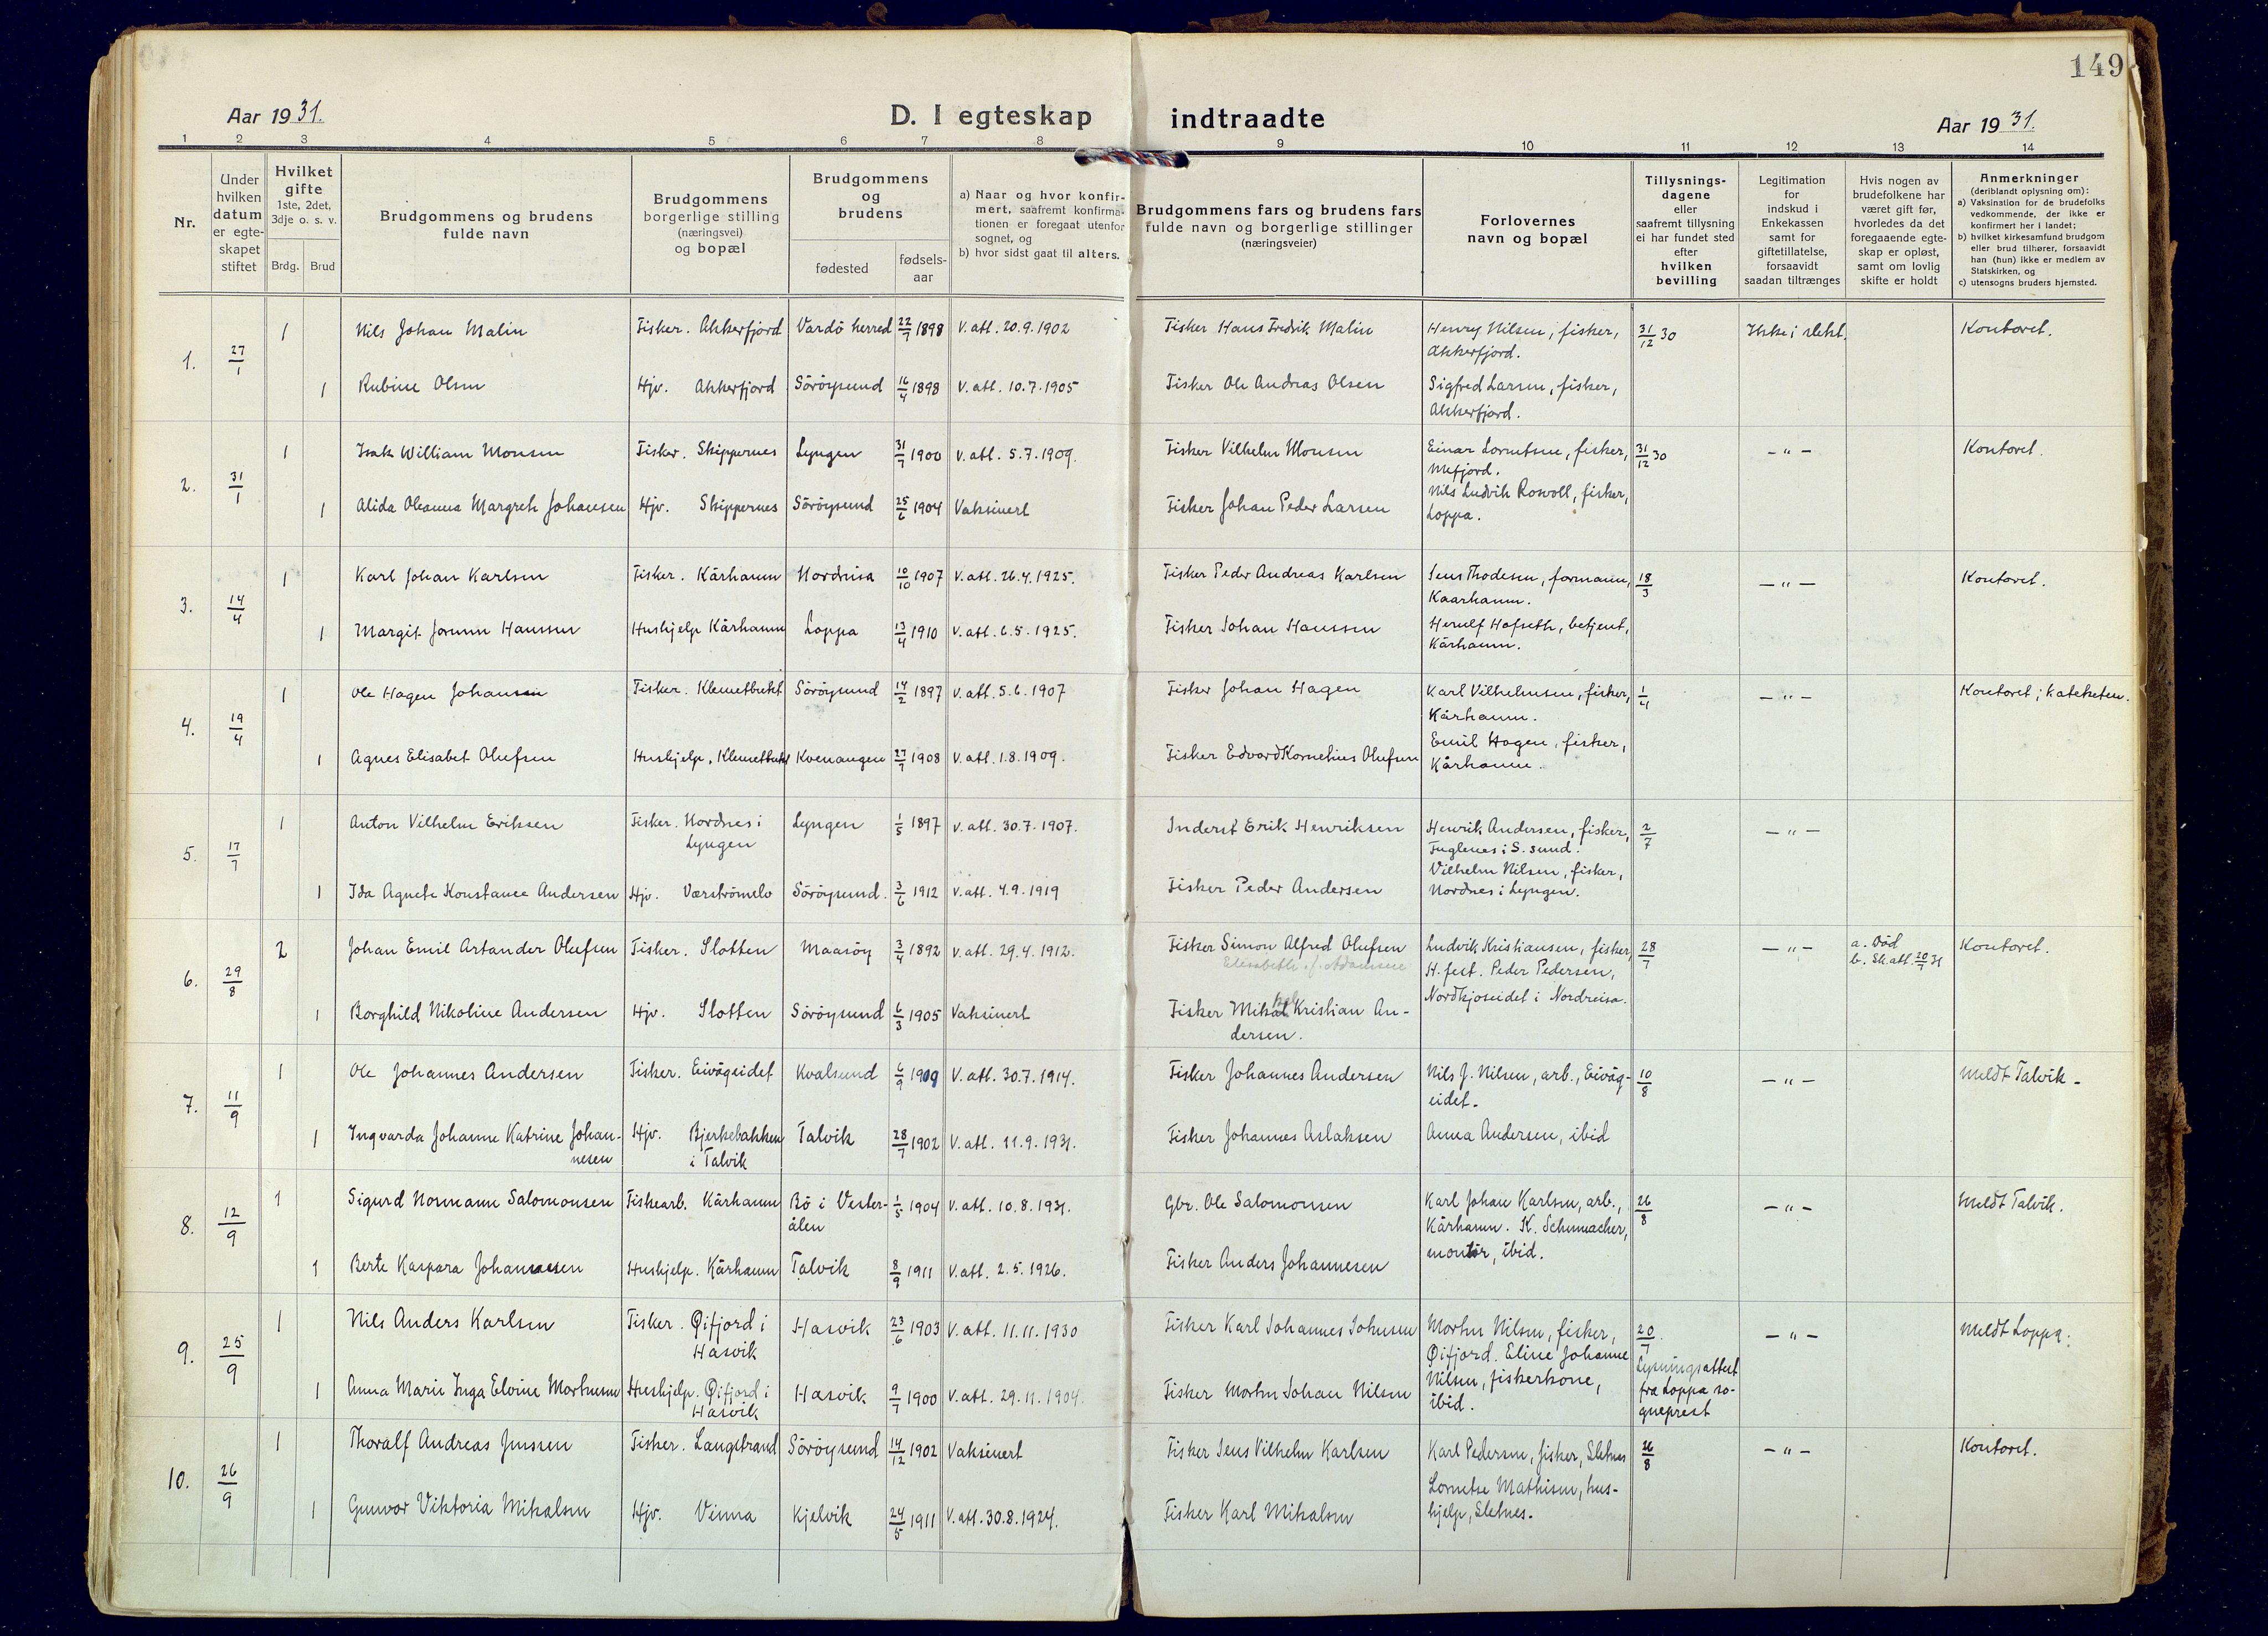 149
Aar 1931.
D. I egteskap indtraadte
Aar 1931.
1 2 3 4 5 6 7 8 9 10 11 12 13 14
Nr.
Under hvilken datum er egte- skapet stiftet
Hvilket gifte 1ste, 2det, 3dje o. s. v.
Brdg. Brud
Brudgommens og brudens fulde navn
Brudgommens borgerlige stilling (næringsvei) og bopæl
Brudgommens og brudens
fødested
fødsels- aar
a) Naar og hvor konfir- mert, saafremt konfirma- tionen er foregaat utenfor sognet, og
b) hvor sidst gaat til alters.
Brudgommens fars og brudens fars fulde navn og borgerlige stillinger (næringsveier)
Forlovernes navn og bopæl
Tillysnings- dagene eller saafremt tillysning ei har fundet sted efter hvilken bevilling
Legitimation for indskud i Enkekassen samt for giftetillatelse, forsaavidt saadan tiltrænges
Hvis nogen av brudefolkene har været gift før, hvorledes da det foregaaende egte- skap er opløst, samt om lovlig skifte er holdt
Anmerkninger (deriblandt oplysning om):
a) Vaksination for de brudefolks vedkommende, der ikke er konfirmert her i landet;
b) hvilket kirkesamfund brudgom eller brud tilhører, forsaavidt han (hun) ikke er medlem av Statskirken, og
c) utensogns bruders hjemsted.
1. 27/1 1 Nils Johan Malin Fisker. Akkerfjord Vardö herred 22/7 1898 V. att. 20.9.1902 Fisker Hans Fredrik Malin Henry Nilsen, fisker, Akkerfjord. 31/12 30 Ikke i slekt. Kontoret.
1 Rubine Olsen Hjv. Akkerfjord Söröysund 16/4 1898 V. att. 10.7.1905 Fisker Ole Andreas Olsen Sigfred Larsen, fisker, Akkerfjord.
2. 31/1 1 Isak William Monsen Fisker. Skippernes Lyngen 31/7 1900 V. att. 5.7.1909. Fisker Vilhelm Monsen Einar Lorentsen, fisker, Mefjord. 31/12 30 - " - Kontoret.
1 Alida Oleanna Margreth Johansen Hjv. Skippernes Söröysund 25/6 1904 Vaksinert Fisker Johan Peder Larsen Nils Ludvik Rosvoll, fisker, Loppa.
3. 14/4 1 Karl Johan Karlsen Fisker. Kårhamn Nordreisa 10/10 1907 V. att. 26.4.1925. Fisker Peder Andreas Karlsen Jens Thodesen, formann, Kaarhamn. 18/3 - " - Kontoret.
1 Margit Jorunn Hanssen Hushjelp Kårhamn Loppa 13/4 1910 V. att. 6.5.1925. Fisker Johan Hanssen Herulf Hofseth, betjent, Kårhamn.
4. 19/4 1 Ole Hagen Johansen Fisker. Klemetbukt Söröysund 14/2 1897 V. att. 5.6.1907 Fisker Johan Hagen Karl Vilhelmsen, fisker, Kårhamn. 1/4 - " - Kontoret; kateketen.
1 Agnes Elisabet Olufsen Hushjelp, Klemetbukt Kvenangen 27/7 1908 V. att. 1.8.1909. Fisker Edvard Kornelius Olufsen Emil Hagen, fisker, Kårhamn.
5. 17/7 1 Anton Vilhelm Eriksen Fisker. Nordnes i Lyngen Lyngen 1/5 1897 V. att. 30.7.1907. Inderst Erik Henriksen Henrik Andersen, fisker, Fuglenes i S. sund. 2/7 - " -
1 Ida Agnete Konstance Andersen Hjv. Værströmelv Söröysund. 3/6 1912 V. att. 4.9.1919 Fisker Peder Andersen Vilhelm Nilsen, fisker, Nordnes i Lyngen.
6. 29/8 2 Johan Emil Artander Olufsen Fisker. Slotten Maasöy 3/4 1892 V. att. 29.4.1912. Fisker Simon Alfred Olufsen Ludvik Kristiansen, fisker, H. fest. Peder Pedersen, Nordkjoseidet i Nordreisa. 28/7 - " - a. Död b. Sk. att. 20/7 31 Kontoret.
1 Borghild Nikoline Andersen Hjv. Slotten Söröysund 6/3 1905 Vaksinert Fisker Mikal Kristian An- dersen.
7. 11/9 1 Ole Johannes Andersen Fisker. Eivågeidet Kvalsund 6/9 1909 V. att. 30.7.1914. Fisker Johannes Andersen Nils J. Nilsen, arb., Eivåg- eidet. 10/8 - " - Meldt Talvik -
1 Ingvarda Johanne Katrine Johan- nesen Hjv. Bjerkebakken i Talvik Talvik 28/7 1902 V. att. 11.9.1931. Fisker Johannes Aslaksen Anna Andersen, ibid
8. 12/9 1 Sigurd Normann Salomonsen Fiskearb. Kårhamn Bö i Vester- ålen 1/5 1904 V. att. 10.8.1931. Gbr. Ole Salomonsen Karl Johan Karlsen, arb., Kårhamn. K. Schumacher, montör, ibid. 26/8 - " - Meldt Talvik.
1 Berte Kaspara Johannesen Hushjelp. Kårhamn Talvik 8/9 1911 V. att. 2.5.1926. Fisker Anders Johannesen
9. 25/9 1 Nils Anders Karlsen Fisker. Øifjord i Hasvik Hasvik 23/6 1903 V. att. 11.11.1930 Fisker Karl Johannes Johnsen Morten Nilsen, fisker, Øifjord. Eline Johanne Nilsen, fiskerkone, ibid. 20/7. Lysningsattest fra Loppa so- gneprest - " - Meldt Loppa.
1 Anna Marie Inga Elvine Mortensen Hushjelp. Øifjord i Hasvik Hasvik 9/7 1900 V. att. 29.11.1904. Fisker Morten Johan Nilsen
10. 26/9 1 Thoralf Andreas Jenssen Fisker. Langstrand Söröysund 14/12 1902 Vaksinert Fisker Jens Vilhelm Karlsen Karl Pedersen, fisker, Sletnes Lorentse Mathisen, hus- hjelp, Sletnes. 26/8 - " - Kontoret.
1 Gunvor Viktoria Mikalsen Hjv. Vinna Kjelvik 24/5 1911 V. att. 30.8.1924. Fisker Karl Mikalsen